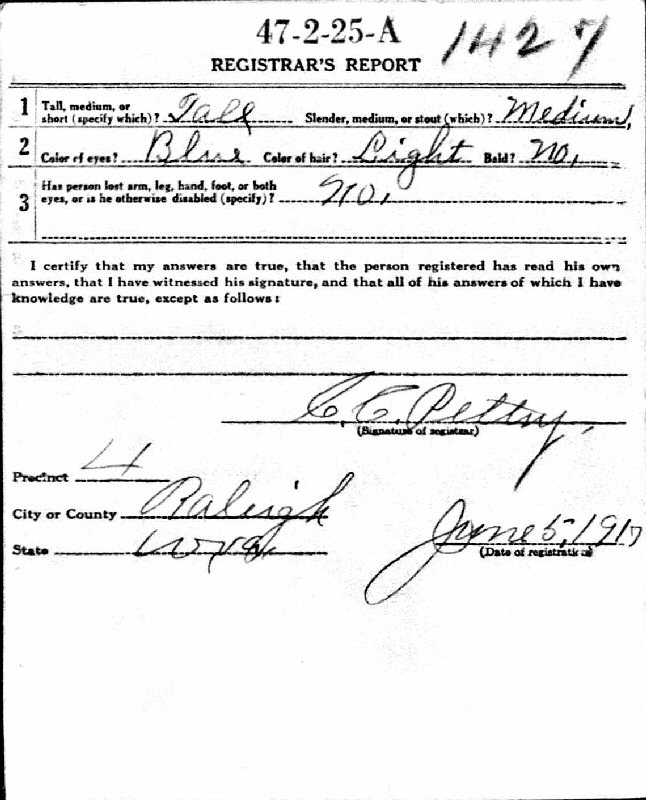 47-2-25-A 1427
REGISTRAR'S REPORT
1 Tall, medium, or
short (specify which)? Tall Slender, medium, or stout (which)? Medium,
2 Color of eyes? Blue Color of hair? Light Bald? no,
Has person lost arm, leg, hand, foot, or both
3 eyes, or is he otherwise disabled (specify)? no,
I certify that my answers are true, that the person registered has read his own
answers, that I have witnessed his signature, and that all of his answers of which I have
knowledge are true, except as follows:
C. C. Pettry,
(Signature of registrar)
Precinct 4
City or County Raleigh
State W va, June 5, 1917
(Date of registration)